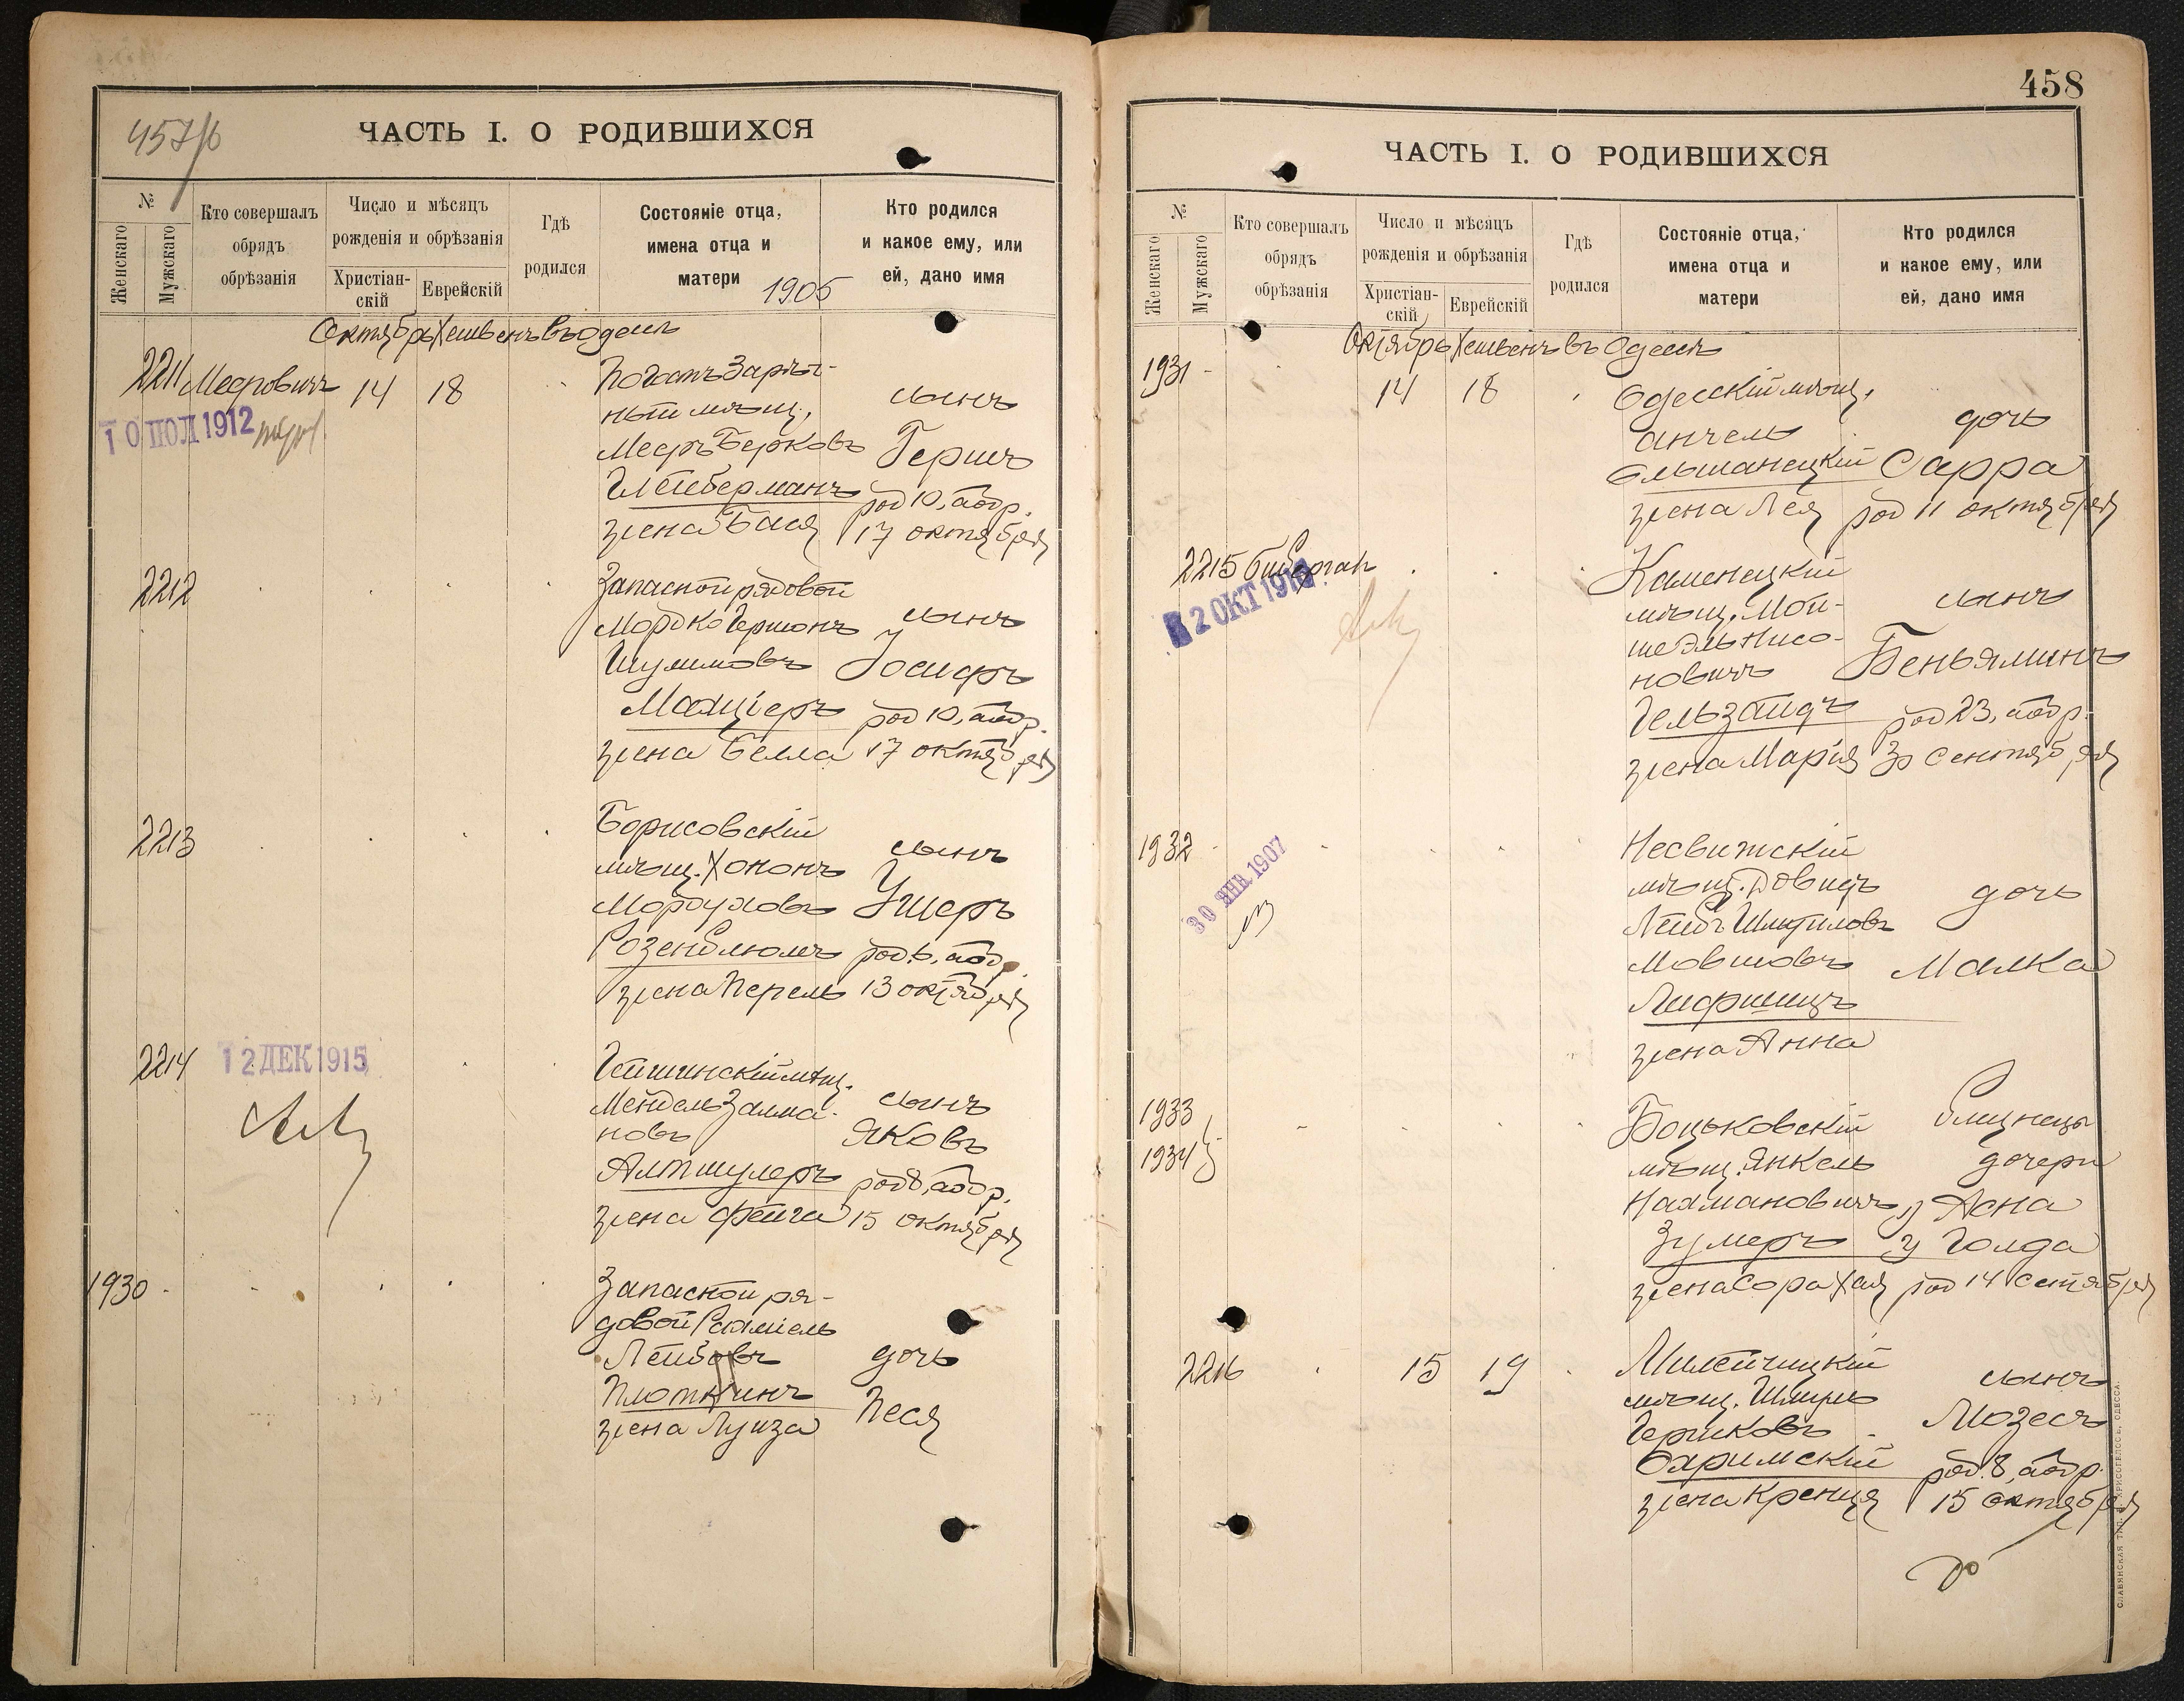 457/б
ЧАСТЬ I. О РОДИВШИХСЯ
№
Женскаго
Мужскаго
Кто совершалъ
обрядъ
обрѣзанія
Число и мѣсяцъ
рожденія и обрѣзанія
Христіан-
скій
Еврейскій
Гдѣ
родился
Состояніе отца,
имена отца и
матери
1905
Кто родился
и какое ему, или
ей, дано имя
Октябрь Хешвенъ въ Одессѣ
2211 Меерович 14 18
10 ІЮЛ 1912
ный мѣщ.
Мееръ Берковъ
Глейберманъ
жена Бася
сынъ
Гершъ
род 10, аобр.
17 октября
2212
Запасной рядовой
Мордко Гершонъ
Шулимовъ
жена Белла
сынъ
Іосифъ
род 10, аобр.
17 октября
2213
Борисовскій
мѣщ. Хононъ
Мордуховъ
Розенблюмъ
жена Перель
сынъ
Ушеръ
род. 6, аобр.
13 октября
2214
12 ДЕК 1915
мѣщ.
Мендель Залма-
новъ
Алтшулеръ
жена Фейга
сынъ
Яковъ
род 8, аобр.
15 октября
1930
Запасной ря-
довой
Лейбовъ
Плоткинъ
жена Луиза
дочь
Песя
458
ЧАСТЬ I. О РОДИВШИХСЯ
№
Женскаго
Мужскаго
Кто совершалъ
обрядъ
обрѣзанія
Число и мѣсяцъ
рожденія и обрѣзанія
Христіан-
скій
Еврейскій
Гдѣ
родился
Состояніе отца,
имена отца и
матери
Кто родился
и какое ему, или
ей, дано имя
Октябрь Хешвенъ въ Одессѣ
1931
14 18
Одесскій мѣщ.
Анчель
Ольшанецкій
жена Лея
дочь
Сарра
род 11 октября
2215
2 ОКТ
Каменецкій
мѣщ. Мой-
ше Эль Нисо-
новичъ
Гельзандъ
жена Марія
сынъ
Беньяминъ
род 23, аобр.
30 Сентября
1932
30 ЯНВ 1907
Несвижскій
мѣщ. Довидъ
Лейбъ Шмуиловъ
Мовшовъ
Лифшицъ
жена Анна
дочь
Малка
1933
1934
Боцьковскій
мѣщ. Янкель
Нахмановичъ
Зумеръ
жена Сора Хая
Близнецы
дочери
1) Асна
2) Голда
род 14 Сентября
2216
15 19
Милейчицкій
мѣщ. Шмуль
Гершковъ
Охримскій
жена Креня
сынъ
Мозесъ
род. 8, аобр.
15 октября
СЛАВЯНСКАЯ ТИП. Е. ХРИСОГЕЛОСЪ, ОДЕССА.